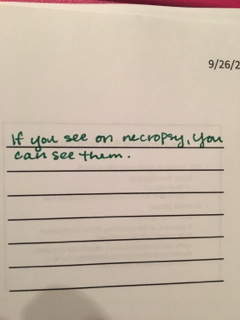 9/26/2
If you see on necropsy, you
can see them.